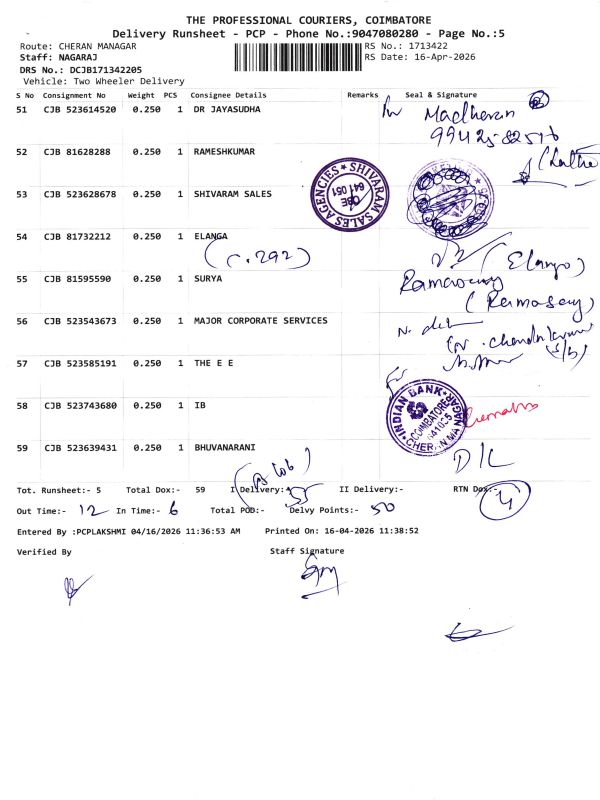 THE PROFESSIONAL COURIERS, COIMBATORE
Delivery Runsheet - PCP - Phone No.:9047080280 - Page No.:5
Route: CHERAN MANAGAR
RS No.: 1713422
Staff: NAGARAJ
RS Date: 16-Apr-2026
DRS No.: DCJB171342205
Vehicle: Two Wheeler Delivery
S No Consignment No Weight PCS Consignee Details Remarks Seal & Signature
51 CJB 523614520 0.250 1 DR JAYASUDHA
Madheran
52 CJB 81628288 0.250 1 RAMESHKUMAR
53 CJB 523628678 0.250 1 SHIVARAM SALES
SHIVARAM SALES AGENCIES
CBE
641 051
54 CJB 81732212 0.250 1 ELANGA
(Elango)
55 CJB 81595590 0.250 1 SURYA
Ramasamy
(Ramasamy)
56 CJB 523543673 0.250 1 MAJOR CORPORATE SERVICES
57 CJB 523585191 0.250 1 THE E E
58 CJB 523743680 0.250 1 IB
INDIAN BANK
COIMBATORE
641035
CHERAN MA NAGAR
59 CJB 523639431 0.250 1 BHUVANARANI
D/L
Tot. Runsheet:- 5 Total Dox:- 59 I Delivery:- 55 II Delivery:- RTN Dox:- 4
Out Time:- 12 In Time:- 6 Total POD:- Delvy Points:- 50
Entered By :PCPLAKSHMI 04/16/2026 11:36:53 AM Printed On: 16-04-2026 11:38:52
Verified By Staff Signature